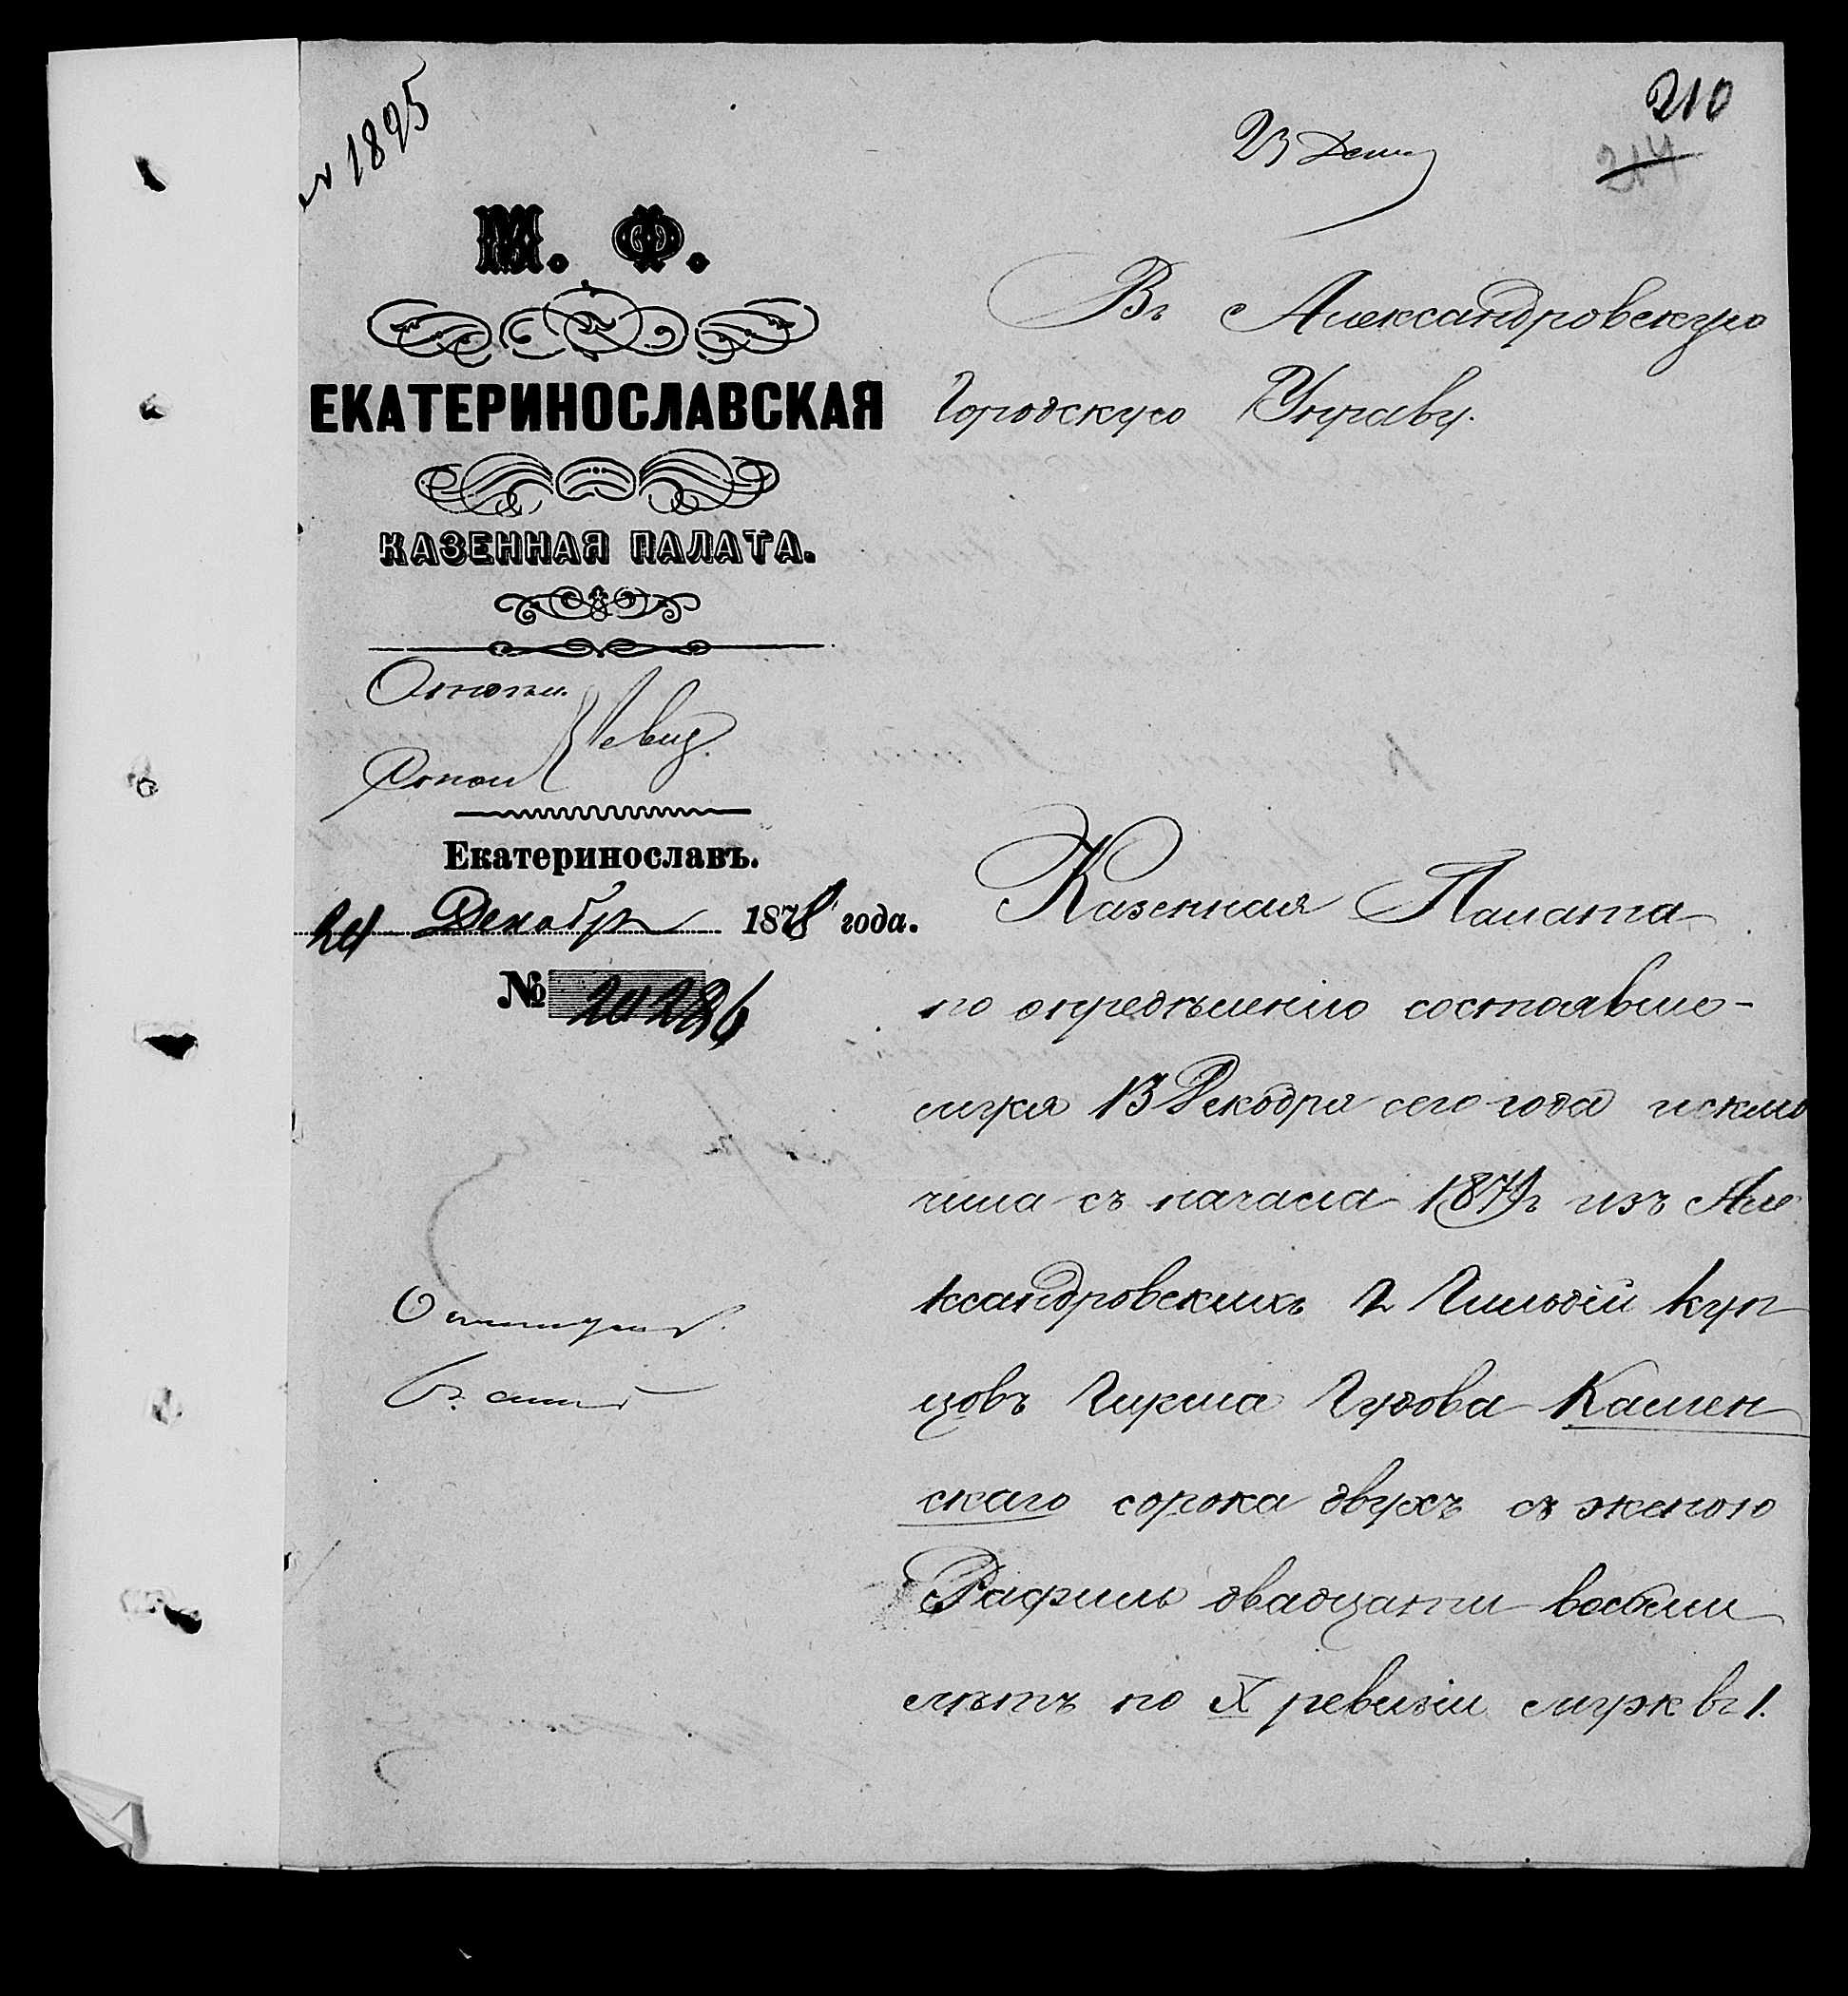 № 1895
210
214
23 Дек
М. Ф.
ЕКАТЕРИНОСЛАВСКАЯ
КАЗЕННАЯ ПАЛАТА.
Ревиз.
Екатеринославъ.
Декабря 1878 года.
№
Въ Александровскую
Городскую Управу.
Казенная Палата
по опредѣленію состоявше-
муся 13 Декабря сего года исклю
чила съ начала из Але
ксандровскихъ 2 Гильдіи куп
цовъ Гирша Камен
скаго сорока двухъ съ женою
двадцати восьми
лѣтъ по X ревизіи муж въ 1.